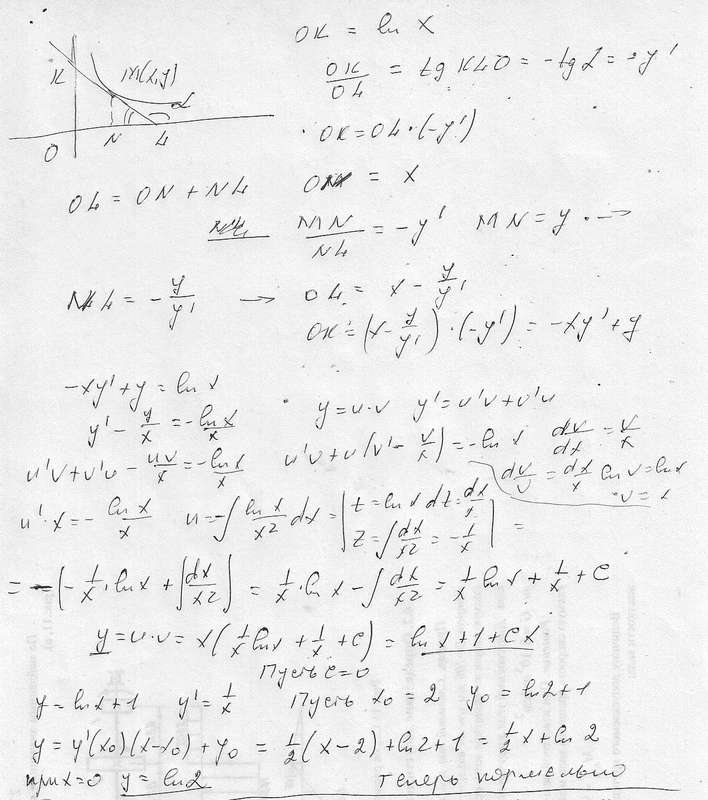 OK = ln x
K M(x,y) α
OK/OL = tg KLO = -tg α = -y'
O N L
OK = OL·(-y')
OL = ON + NL ON = x
MN/NL = -y' MN = y →
NL = - y/y' → OL = x - y/y'
OK = (x - y/y')·(-y') = -xy' + y
-xy' + y = ln x
y' - y/x = - ln x/x y = u·v y' = u'v + v'u
u'v + v'u - uv/x = - ln x/x u'v + u(v' - v/x) = -ln x dv/dx = v/x
dv/v = dx/x ln v = ln x
v = x
u'·x = - ln x/x u = -∫ ln x/x² dx = | t = ln x dt = dx/x
z = ∫ dx/x² = - 1/x | =
= -(- 1/x · ln x + ∫ dx/x²) = 1/x · ln x - ∫ dx/x² = 1/x ln x + 1/x + C
y = u·v = x(1/x ln x + 1/x + C) = ln x + 1 + Cx
Пусть C = 0
y = ln x + 1 y' = 1/x Пусть x₀ = 2 y₀ = ln 2 + 1
y = y'(x₀)(x - x₀) + y₀ = 1/2 (x - 2) + ln 2 + 1 = 1/2 x + ln 2
при x = 0 y = ln 2 теперь нормально